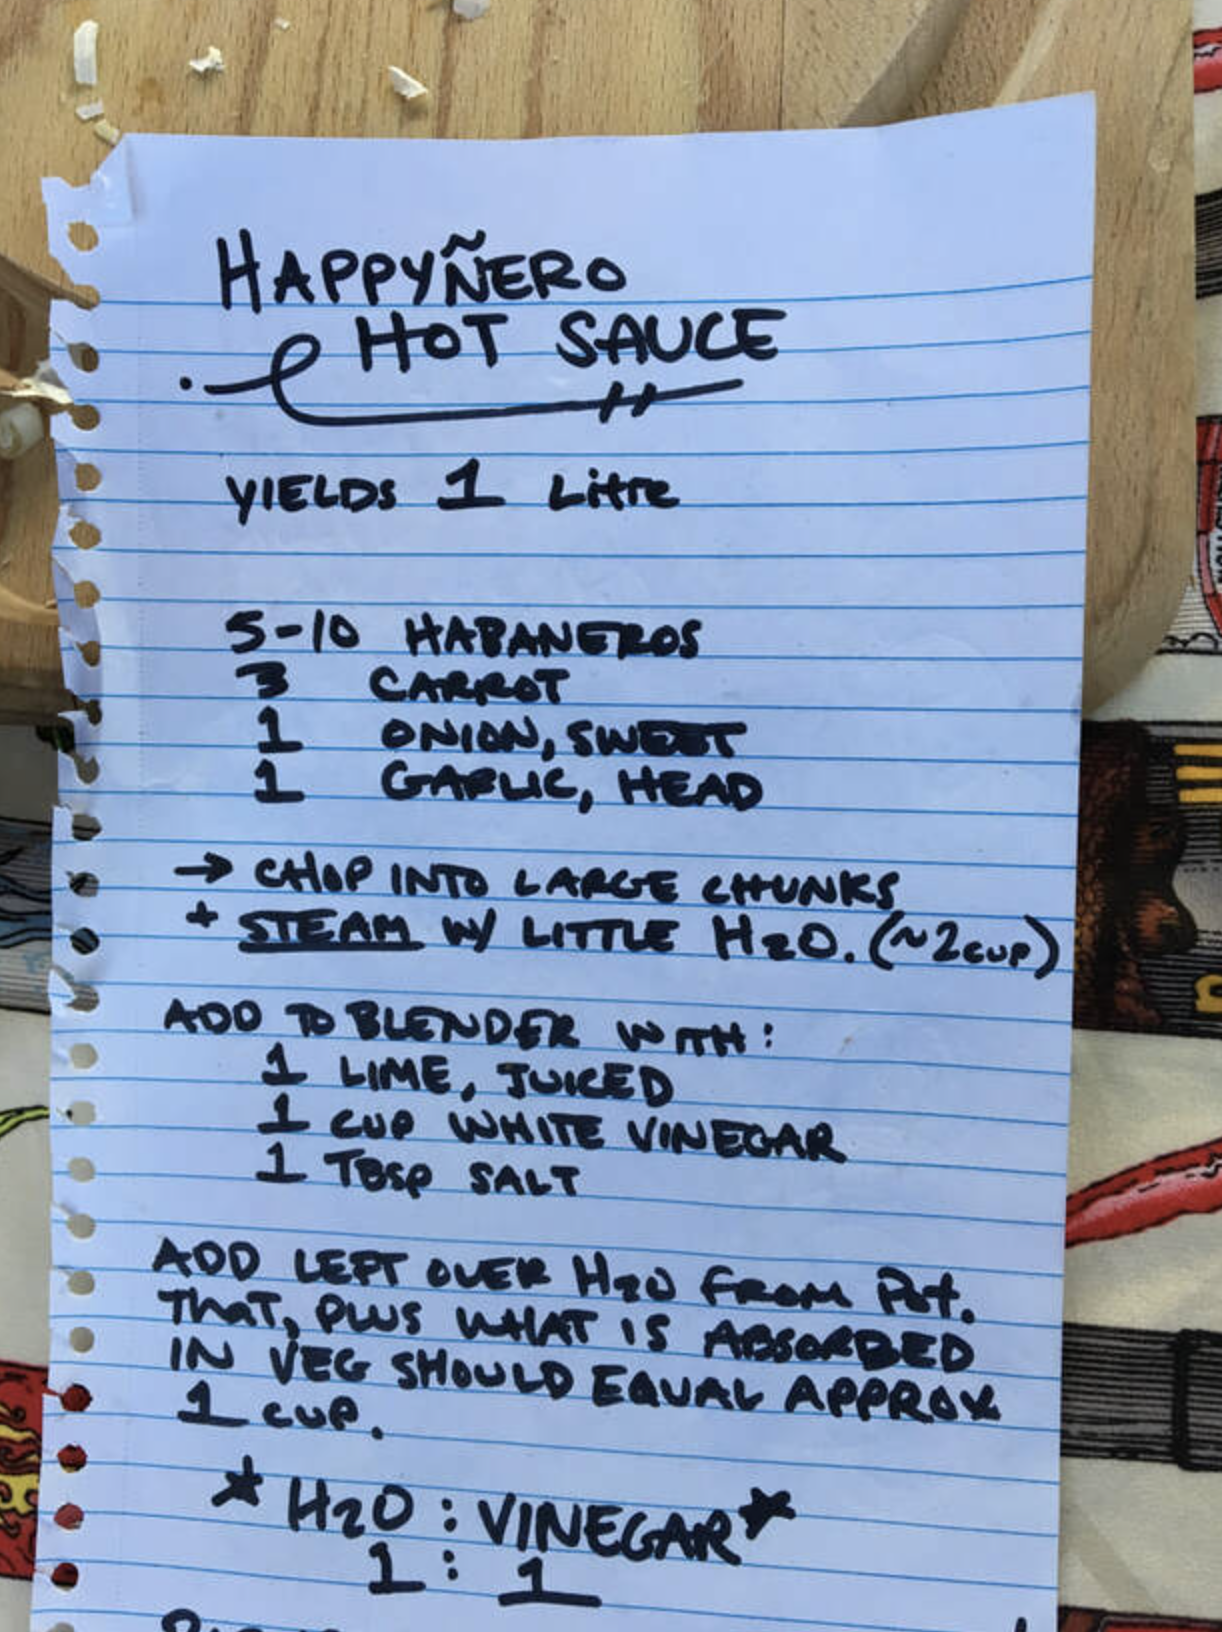 HAPPYÑERO
HOT SAUCE
YIELDS 1 Litre
5-10 HABANEROS
3 CARROT
1 ONION, SWEET
1 GARLIC, HEAD
→ CHOP INTO LARGE CHUNKS
+ STEAM W/ LITTLE H2O. (~2CUP)
ADD TO BLENDER WITH:
1 LIME, JUICED
1 CUP WHITE VINEGAR
1 TBSP SALT
ADD LEFT OVER H2O FROM Pot.
THAT, PLUS WHAT IS ABSORBED
IN VEG SHOULD EQUAL APPROX
1 CUP.
★ H2O : VINEGAR ★
1 : 1